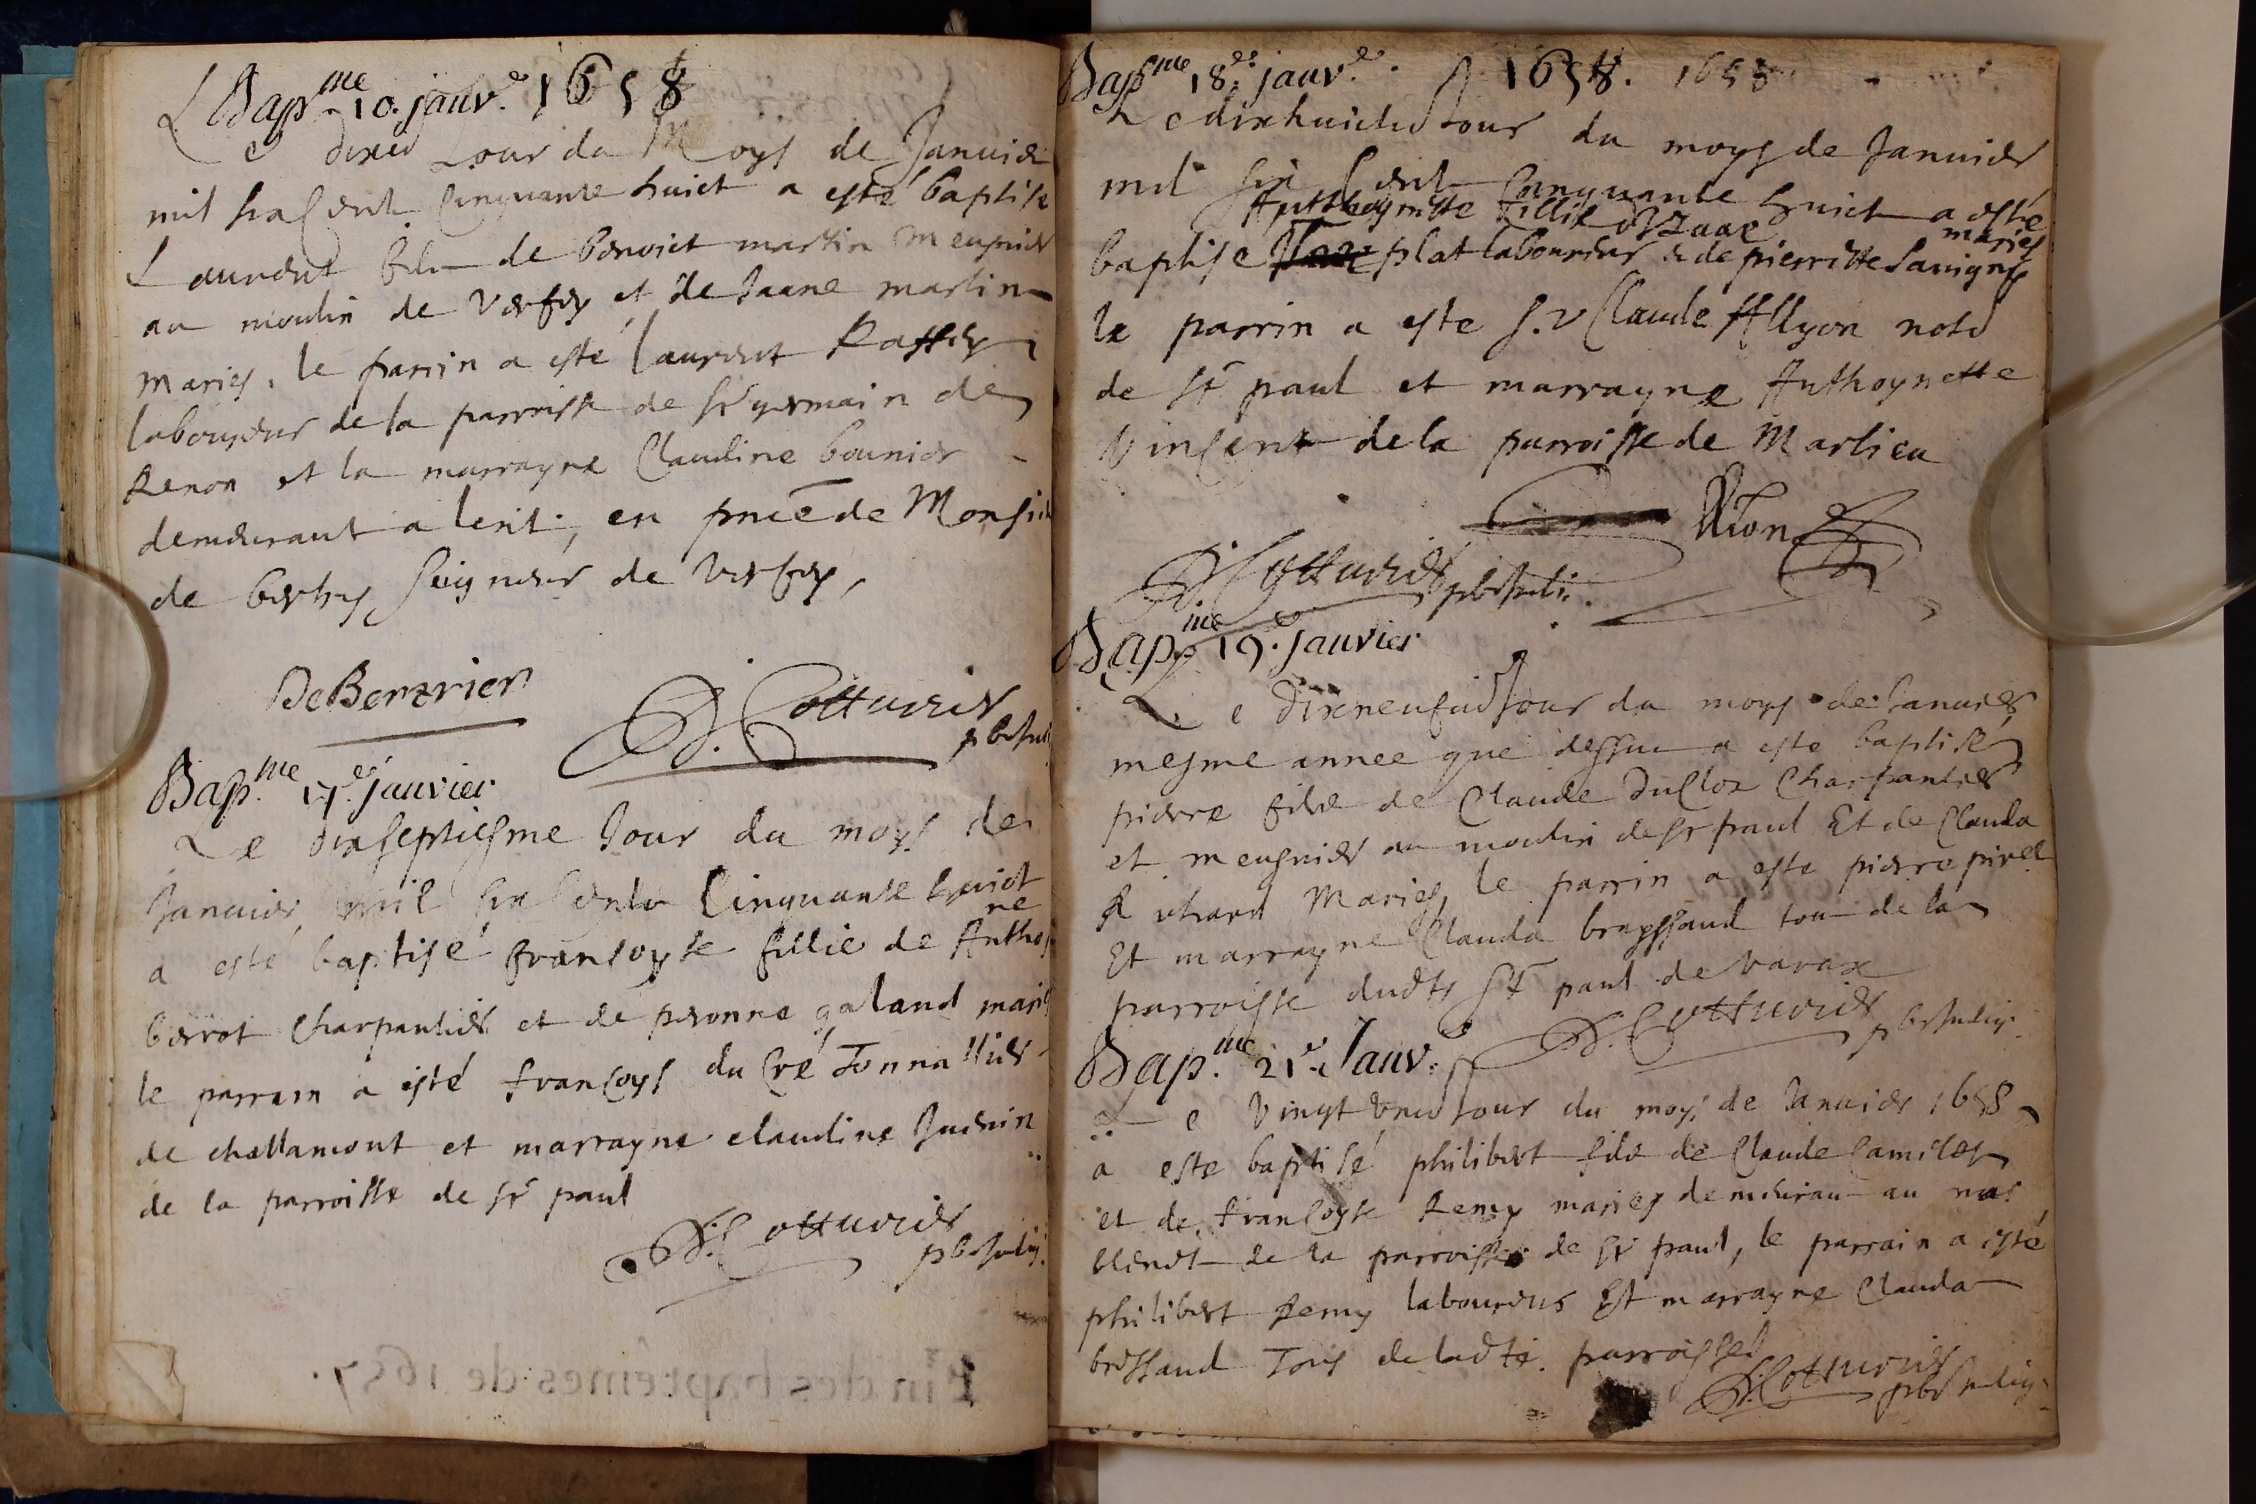 Bapme 10. janv.er 1658
Le dixe Jour du Moys de Januier
mil six Cent Cinquante huict a esté baptise
Laurent filz de benoict martin meusnier
au moulin de Verfey et de Jaane martin
maries. le parrin a esté laurent Raffey
laboureur de la parroisse de st germain de
Renon et la marrayne Claudine bounier
demeurant a lent, en pnce de Monsieur
de bertry seigneur de Verfey,
De Berterier
Cottuvier
pbr
Bap.me 17.er janvier
Le dixseptiesme Jour du moys de
Januier mil six Centz Cinquante huict
a esté baptisé fransoyse fillie de Anthoine
berrot Charpantier et de peronne galand maries
le parrain a esté francoys du Cré Tonnallier
de challamont et marrayne claudine Juenin
de la parroisse de st paul
Cottuvier
pbr
Fin des baptêmes de 1657.
Bapme 18.er janv.er 1658. 1658
Le dixhuictie Jour du moys de Januier
mil six Cent Cinquante huict a esté
Anthoynette fillie d'Izaac maries
baptise plat laboureur & de pierrette Sauigny
le parrin a este s.r Claude Allyon note
de st paul et marrayne Anthoynette
Vincent de la parroisse de Marlieu
Allion
Cottuvier pbr
Bapme 19.e janvier
Le dixneufuie Jour du moys de Januier
mesme annee que dessus a este baptisé
pierre filz de Claude duCloz Charpantier
et meusnier au moulin de st paul Et de Clauda
maries, le parrin a este pierre
Et marrayne Clauda brayssaud tous de la
parroisse dudt st paul de varax
Cottuvier
pbr
Bap.me 21.e Janv.
Le Vingt Vnie Jour du moys de Januier 1658
a este baptisé philibert filz de Claude Camilet
et de francoyse Remy maries demeurant au mas
de la parroisse de st paul, le parrain a esté
philibert Remy laboureur Et marrayne Clauda
bressaud Tous de ladte. parroisse
Cottuvier
pbr